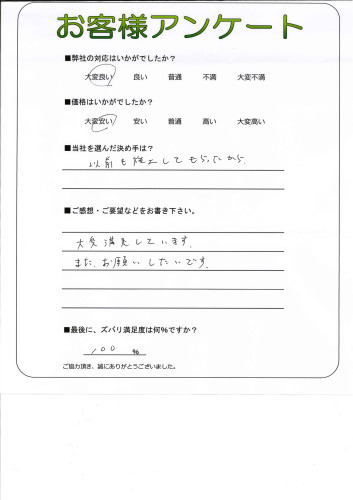 お客様アンケート
■弊社の対応はいかがでしたか？
大変良い 良い 普通 不満 大変不満
■価格はいかがでしたか？
大変安い 安い 普通 高い 大変高い
■当社を選んだ決め手は？
以前も施工してもらったから
■ご感想・ご要望などをお書き下さい。
大変満足しています。
また、お願いしたいです。
■最後に、ズバリ満足度は何％ですか？
100 %
ご協力頂き、誠にありがとうございました。